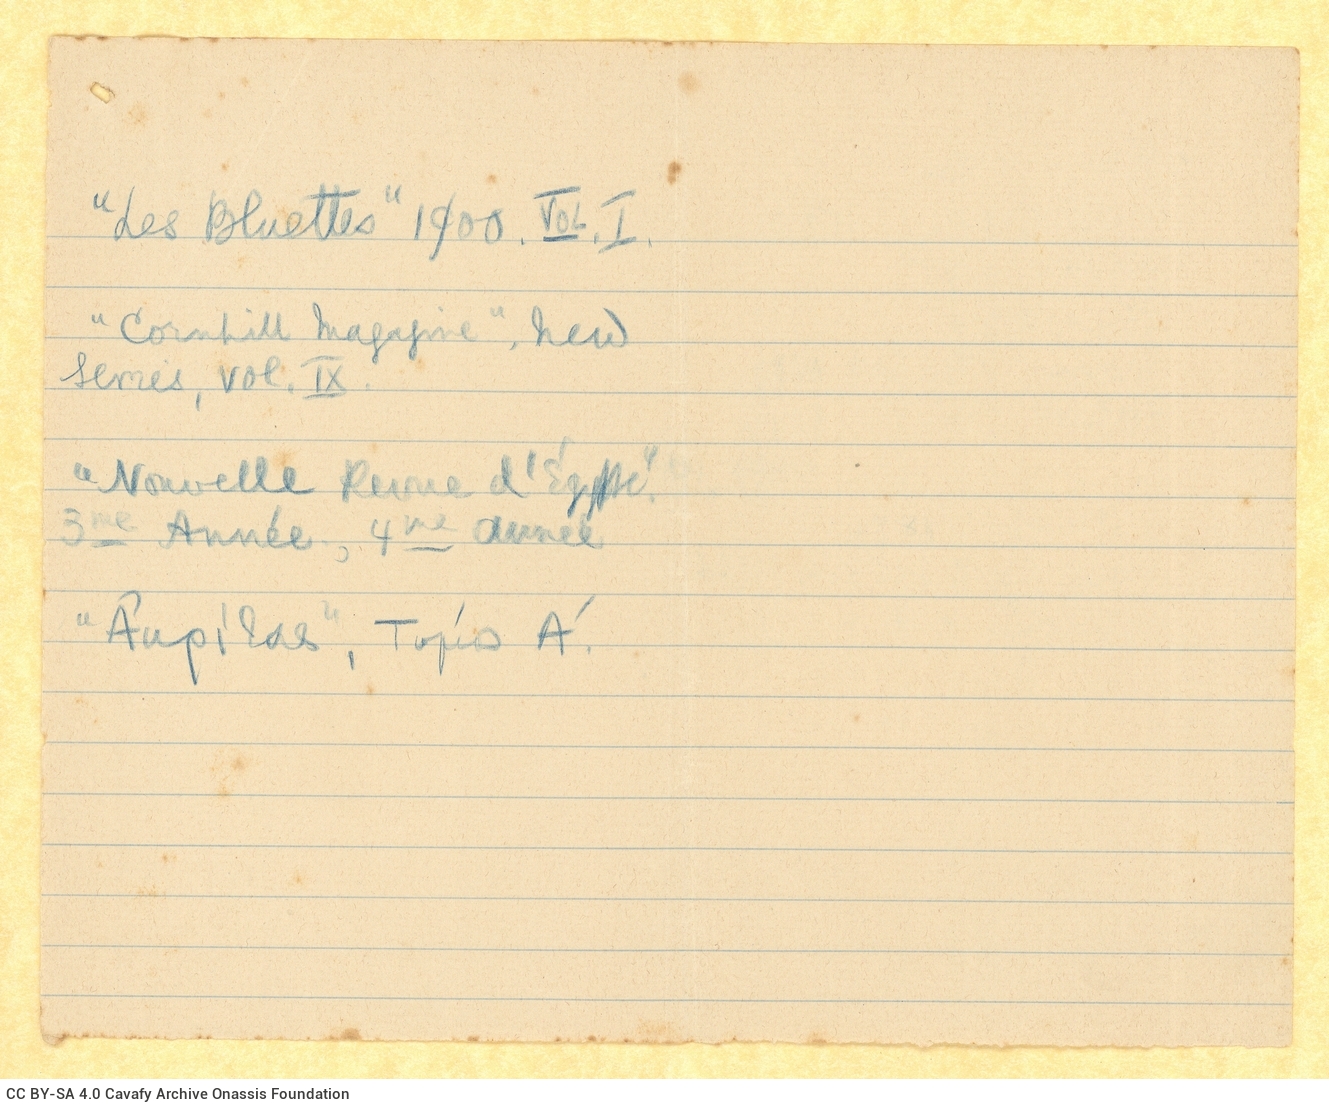 "Les Bluettes" 1900. VOL. I.
"Cornhill Magazine", New
Series, vol. IX.
"Nouvelle Revue d'Égypte".
3me Année, 4me année
Τόμος Α΄.
CC BY-SA 4.0 Cavafy Archive Onassis Foundation